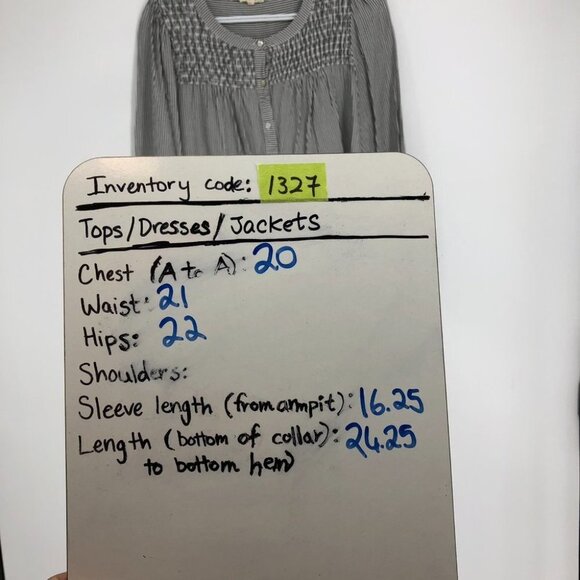 Inventory code: 1327
Tops/Dresses/Jackets
Chest (A to A): 20
Waist: 21
Hips: 22
Shoulders:
Sleeve length (from armpit): 16.25
Length (bottom of collar): 24.25
to bottom hem)